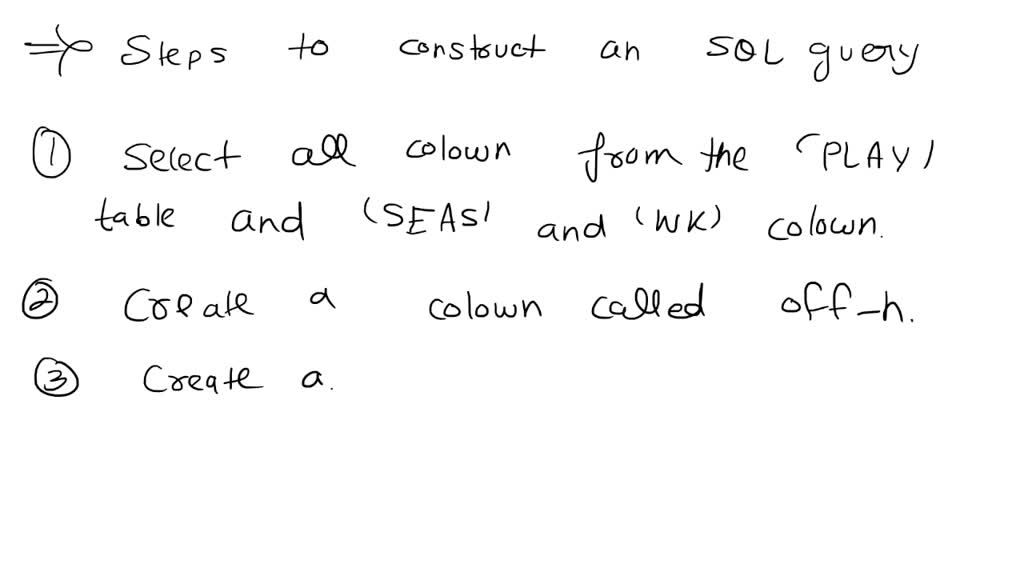 ⇒ Steps to construct an SQL query
① Select all colown from the 'PLAY'
table and 'SEAS' and 'WK' colown.
② Create a colown called off-h.
③ Create a.